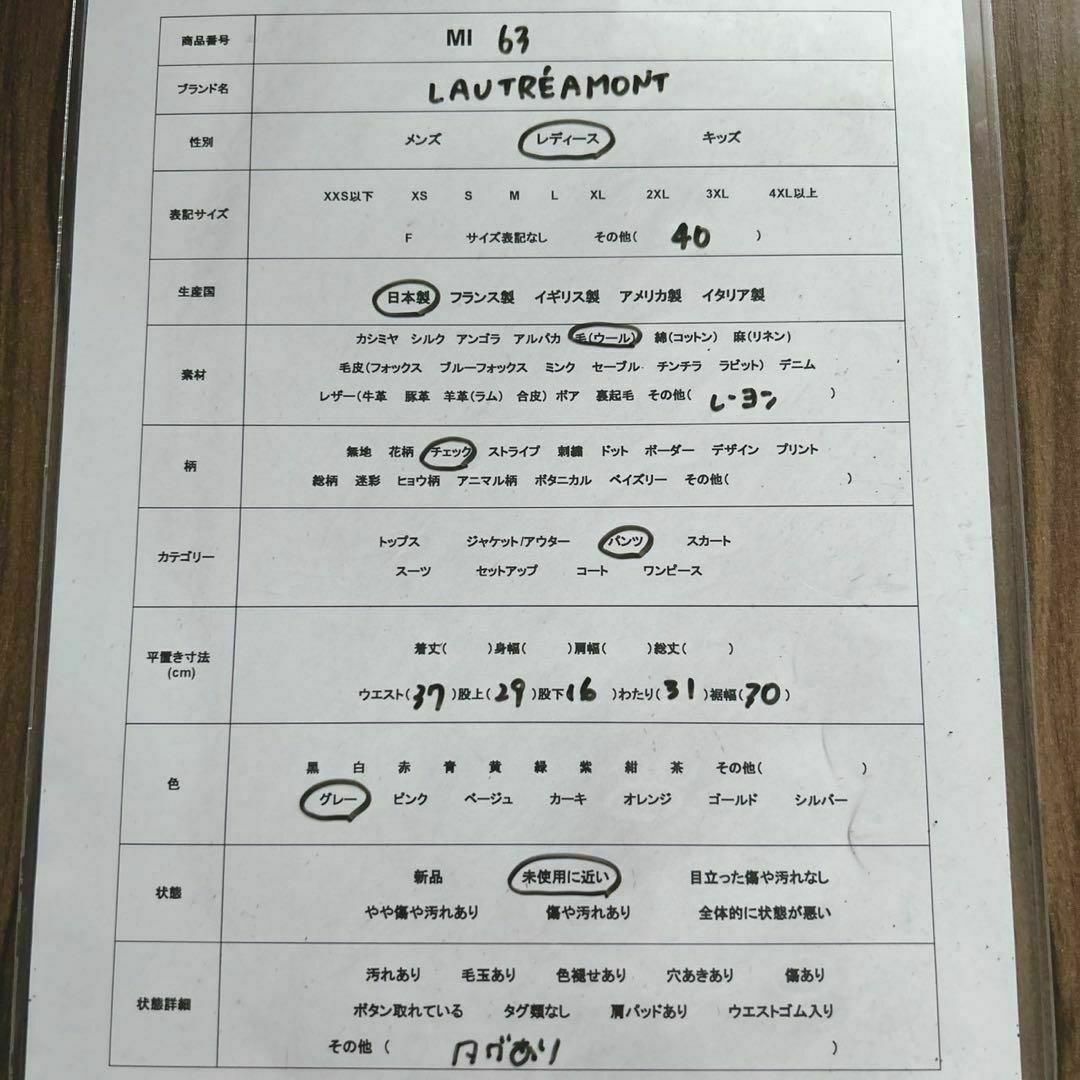 商品番号 MI 63
ブランド名 LAUTRÉAMONT
性別 メンズ レディース キッズ
表記サイズ
XXS以下 XS S M L XL 2XL 3XL 4XL以上
F サイズ表記なし その他( 40 )
生産国 日本製 フランス製 イギリス製 アメリカ製 イタリア製
素材
カシミヤ シルク アンゴラ アルパカ 毛(ウール) 綿(コットン) 麻(リネン)
毛皮(フォックス ブルーフォックス ミンク セーブル チンチラ ラビット) デニム
レザー(牛革 豚革 羊革(ラム) 合皮) ボア 裏起毛 その他( レーヨン )
柄
無地 花柄 チェック ストライプ 刺繍 ドット ボーダー デザイン プリント
総柄 迷彩 ヒョウ柄 アニマル柄 ボタニカル ペイズリー その他( )
カテゴリー
トップス ジャケット/アウター パンツ スカート
スーツ セットアップ コート ワンピース
平置き寸法
(cm)
着丈( )身幅( )肩幅( )総丈( )
ウエスト(37)股上(29)股下(16)わたり(31)裾幅(30)
色
黒 白 赤 青 黄 緑 紫 紺 茶 その他( )
グレー ピンク ベージュ カーキ オレンジ ゴールド シルバー
状態
新品 未使用に近い 目立った傷や汚れなし
やや傷や汚れあり 傷や汚れあり 全体的に状態が悪い
状態詳細
汚れあり 毛玉あり 色褪せあり 穴あきあり 傷あり
ボタン取れている タグ類なし 肩パッドあり ウエストゴム入り
その他 ( タグあり )